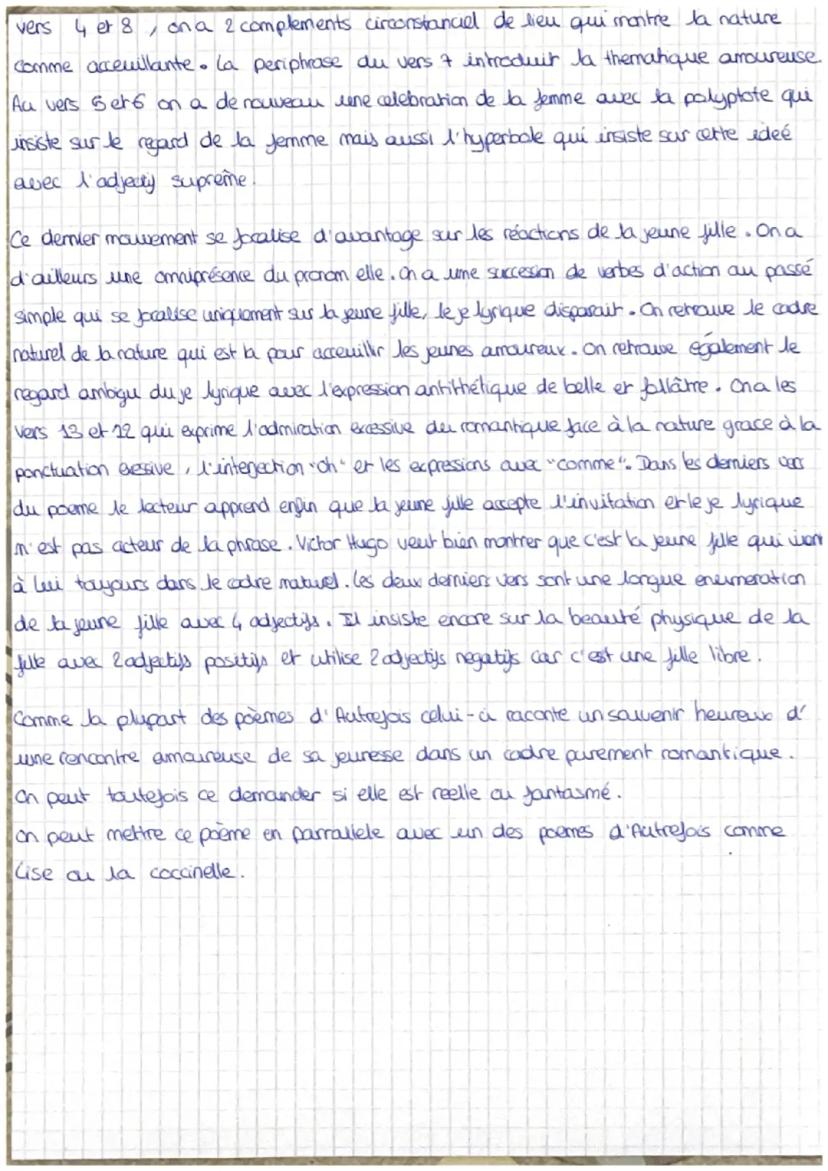 vers 4 et 8, on a 2 complements circonstanciel de lieu qui montre la nature
comme acceuillante. La periphrase du vers 7 introduit la thematique amoureuse.
Au vers 5 et 6 on a de nouveau une celebration de la femme avec la polyptote qui
insiste sur le regard de la femme mais aussi l'hyperbole qui insiste sur cette ideé
avec l'adjectif suprême.
Ce dernier mouvement se focalise d'avantage sur les réactions de la jeune fille. On a
d'ailleurs une omniprésence du pronom elle. On a une succession de verbes d'action au passé
simple qui se focalise uniquement sur la jeune fille, le je lyrique disparait. On retrouve le cadre
naturel de la nature qui est la pour acceuillir les jeunes amoureux. On retrouve également le
regard ambigu du je lyrique avec l'expression antithétique de belle et follâtre. On a les
vers 13 et 12 qui exprime l'admiration excessive du romantique face à la nature grace à la
ponctuation exessive, l'interjection "oh" et les expressions avec "comme". Dans les derniers vers
du poeme le lecteur apprend enfin que la jeune fille accepte l'invitation et le je lyrique
n'est pas acteur de la phrase. Victor Hugo veut bien montrer que c'est la jeune fille qui vient
à lui toujours dans le cadre naturel. Les deux derniers vers sont une longue enumeration
de la jeune fille avec 4 adjectifs. Il insiste encore sur la beauté physique de la
fille avec 2 adjectifs positifs et utilise 2 adjectifs negatifs car c'est une fille libre.
Comme la plupart des poèmes d'Autrefois celui-ci raconte un souvenir heureux d'
une rencontre amoureuse de sa jeunesse dans un cadre purement romantique.
On peut toutefois ce demander si elle est reelle ou fantasmé.
On peut mettre ce poème en parrallele avec un des poemes d'Autrefois comme
Lise ou la coccinelle.